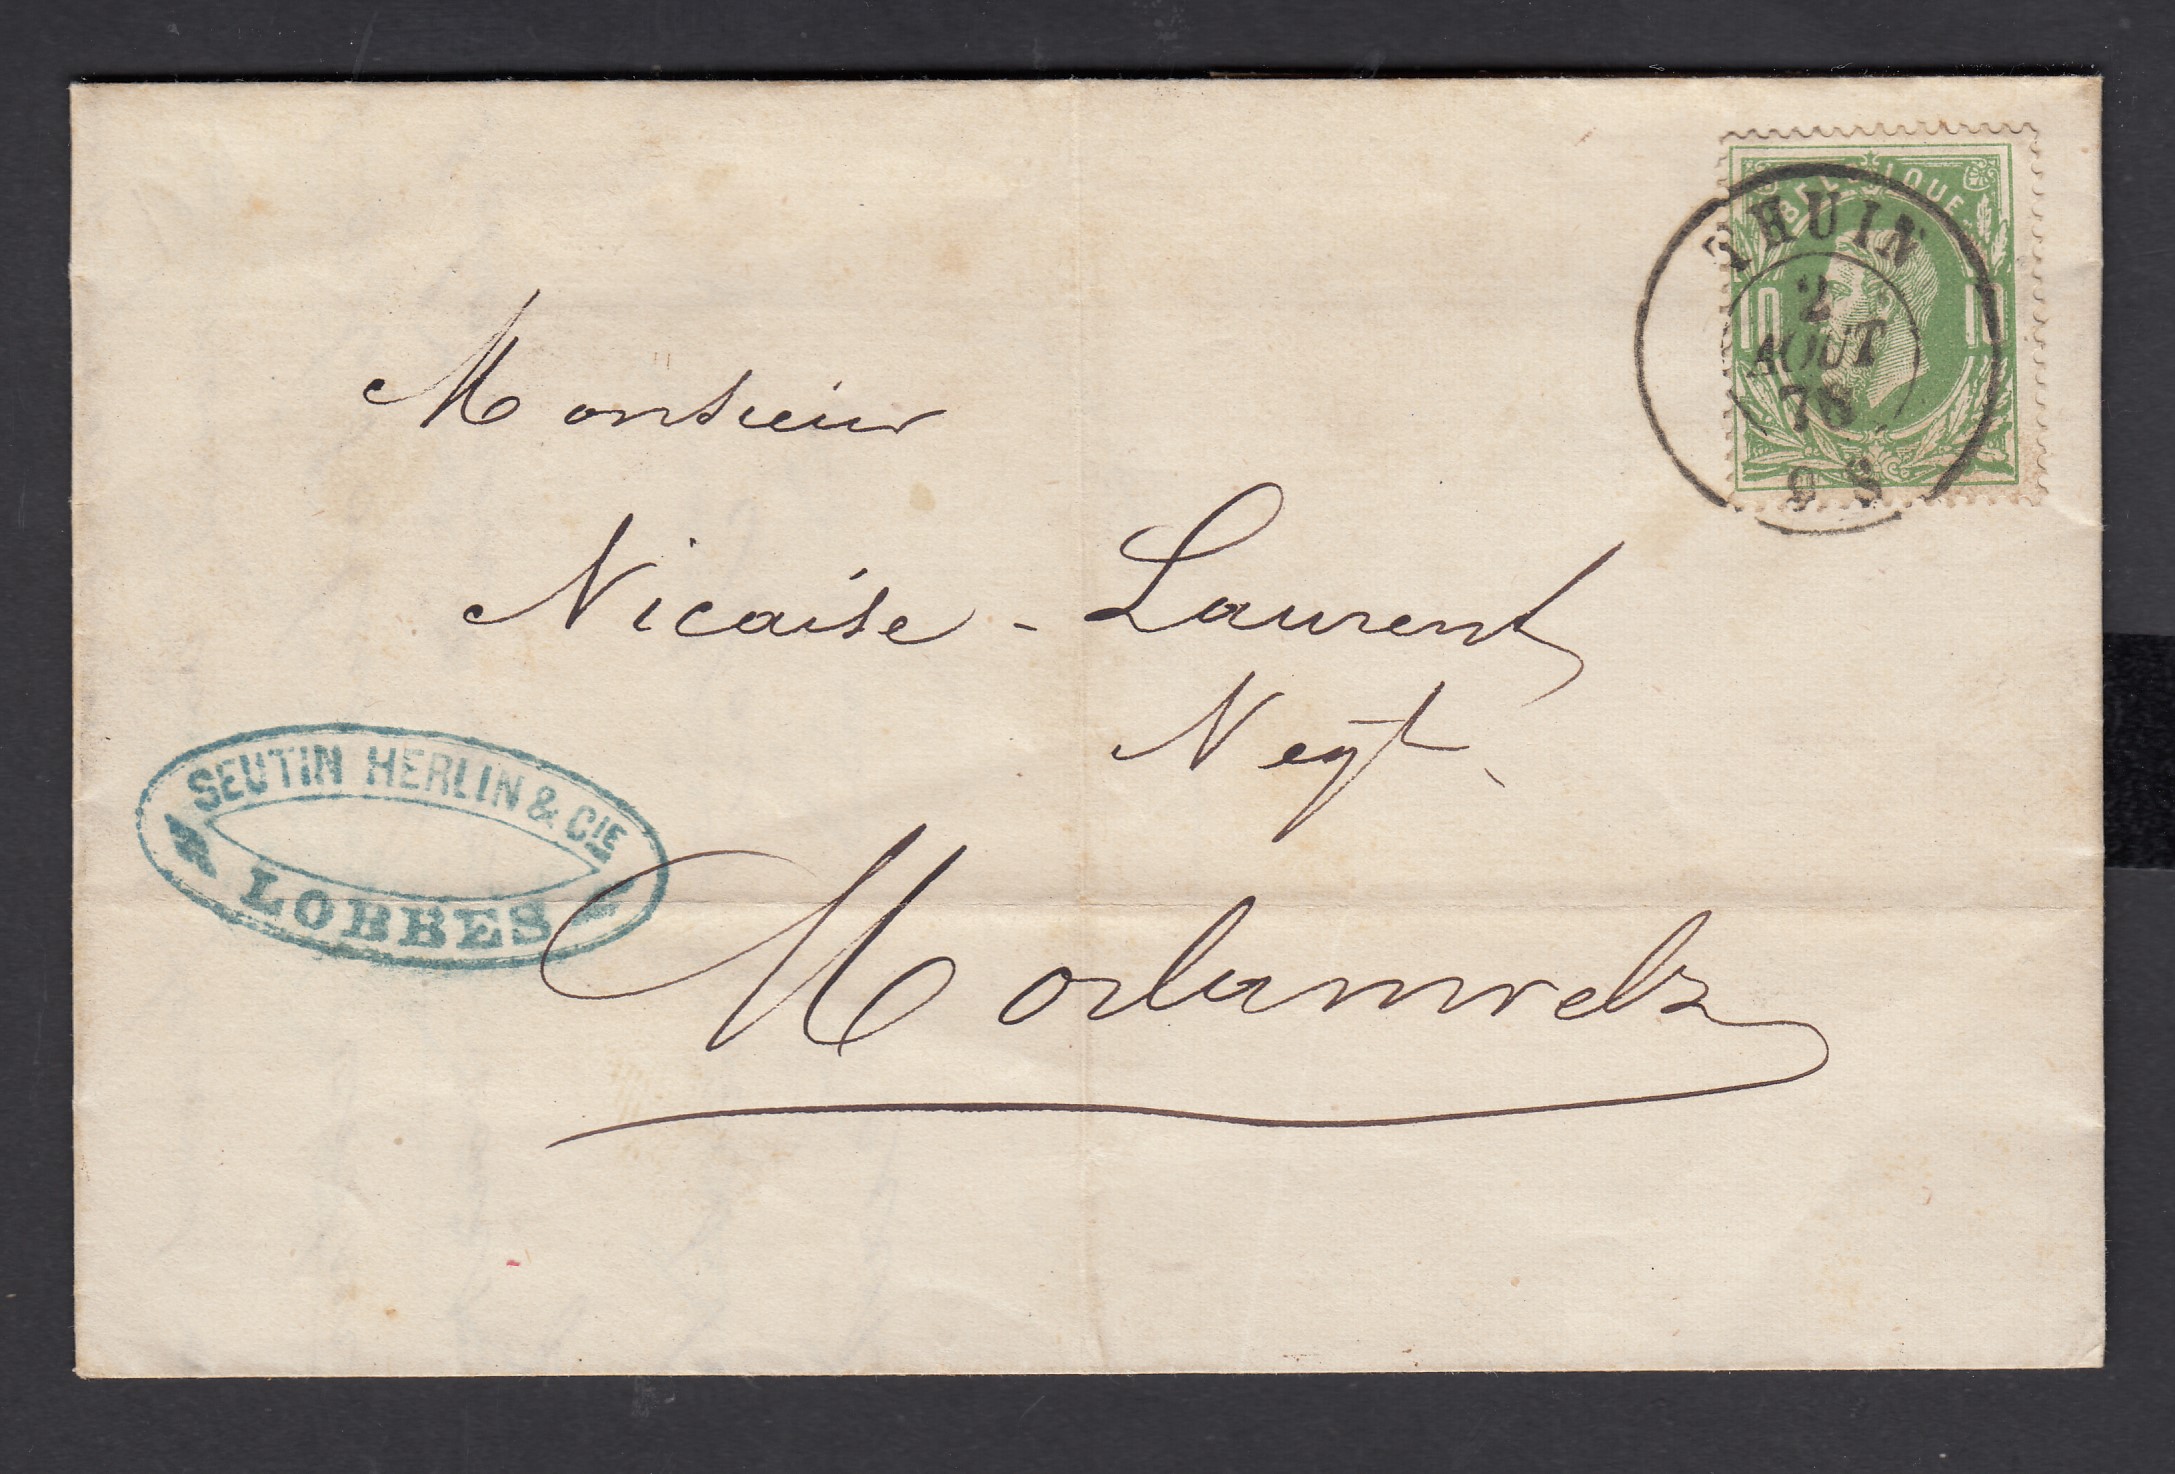 BELGIQUE
10 10
THUIN
2
AOUT
78
9 S
Monsieur
Nicaise - Laurent
Negt
SEUTIN HERLIN & CIE
LOBBES
Morlanwelz